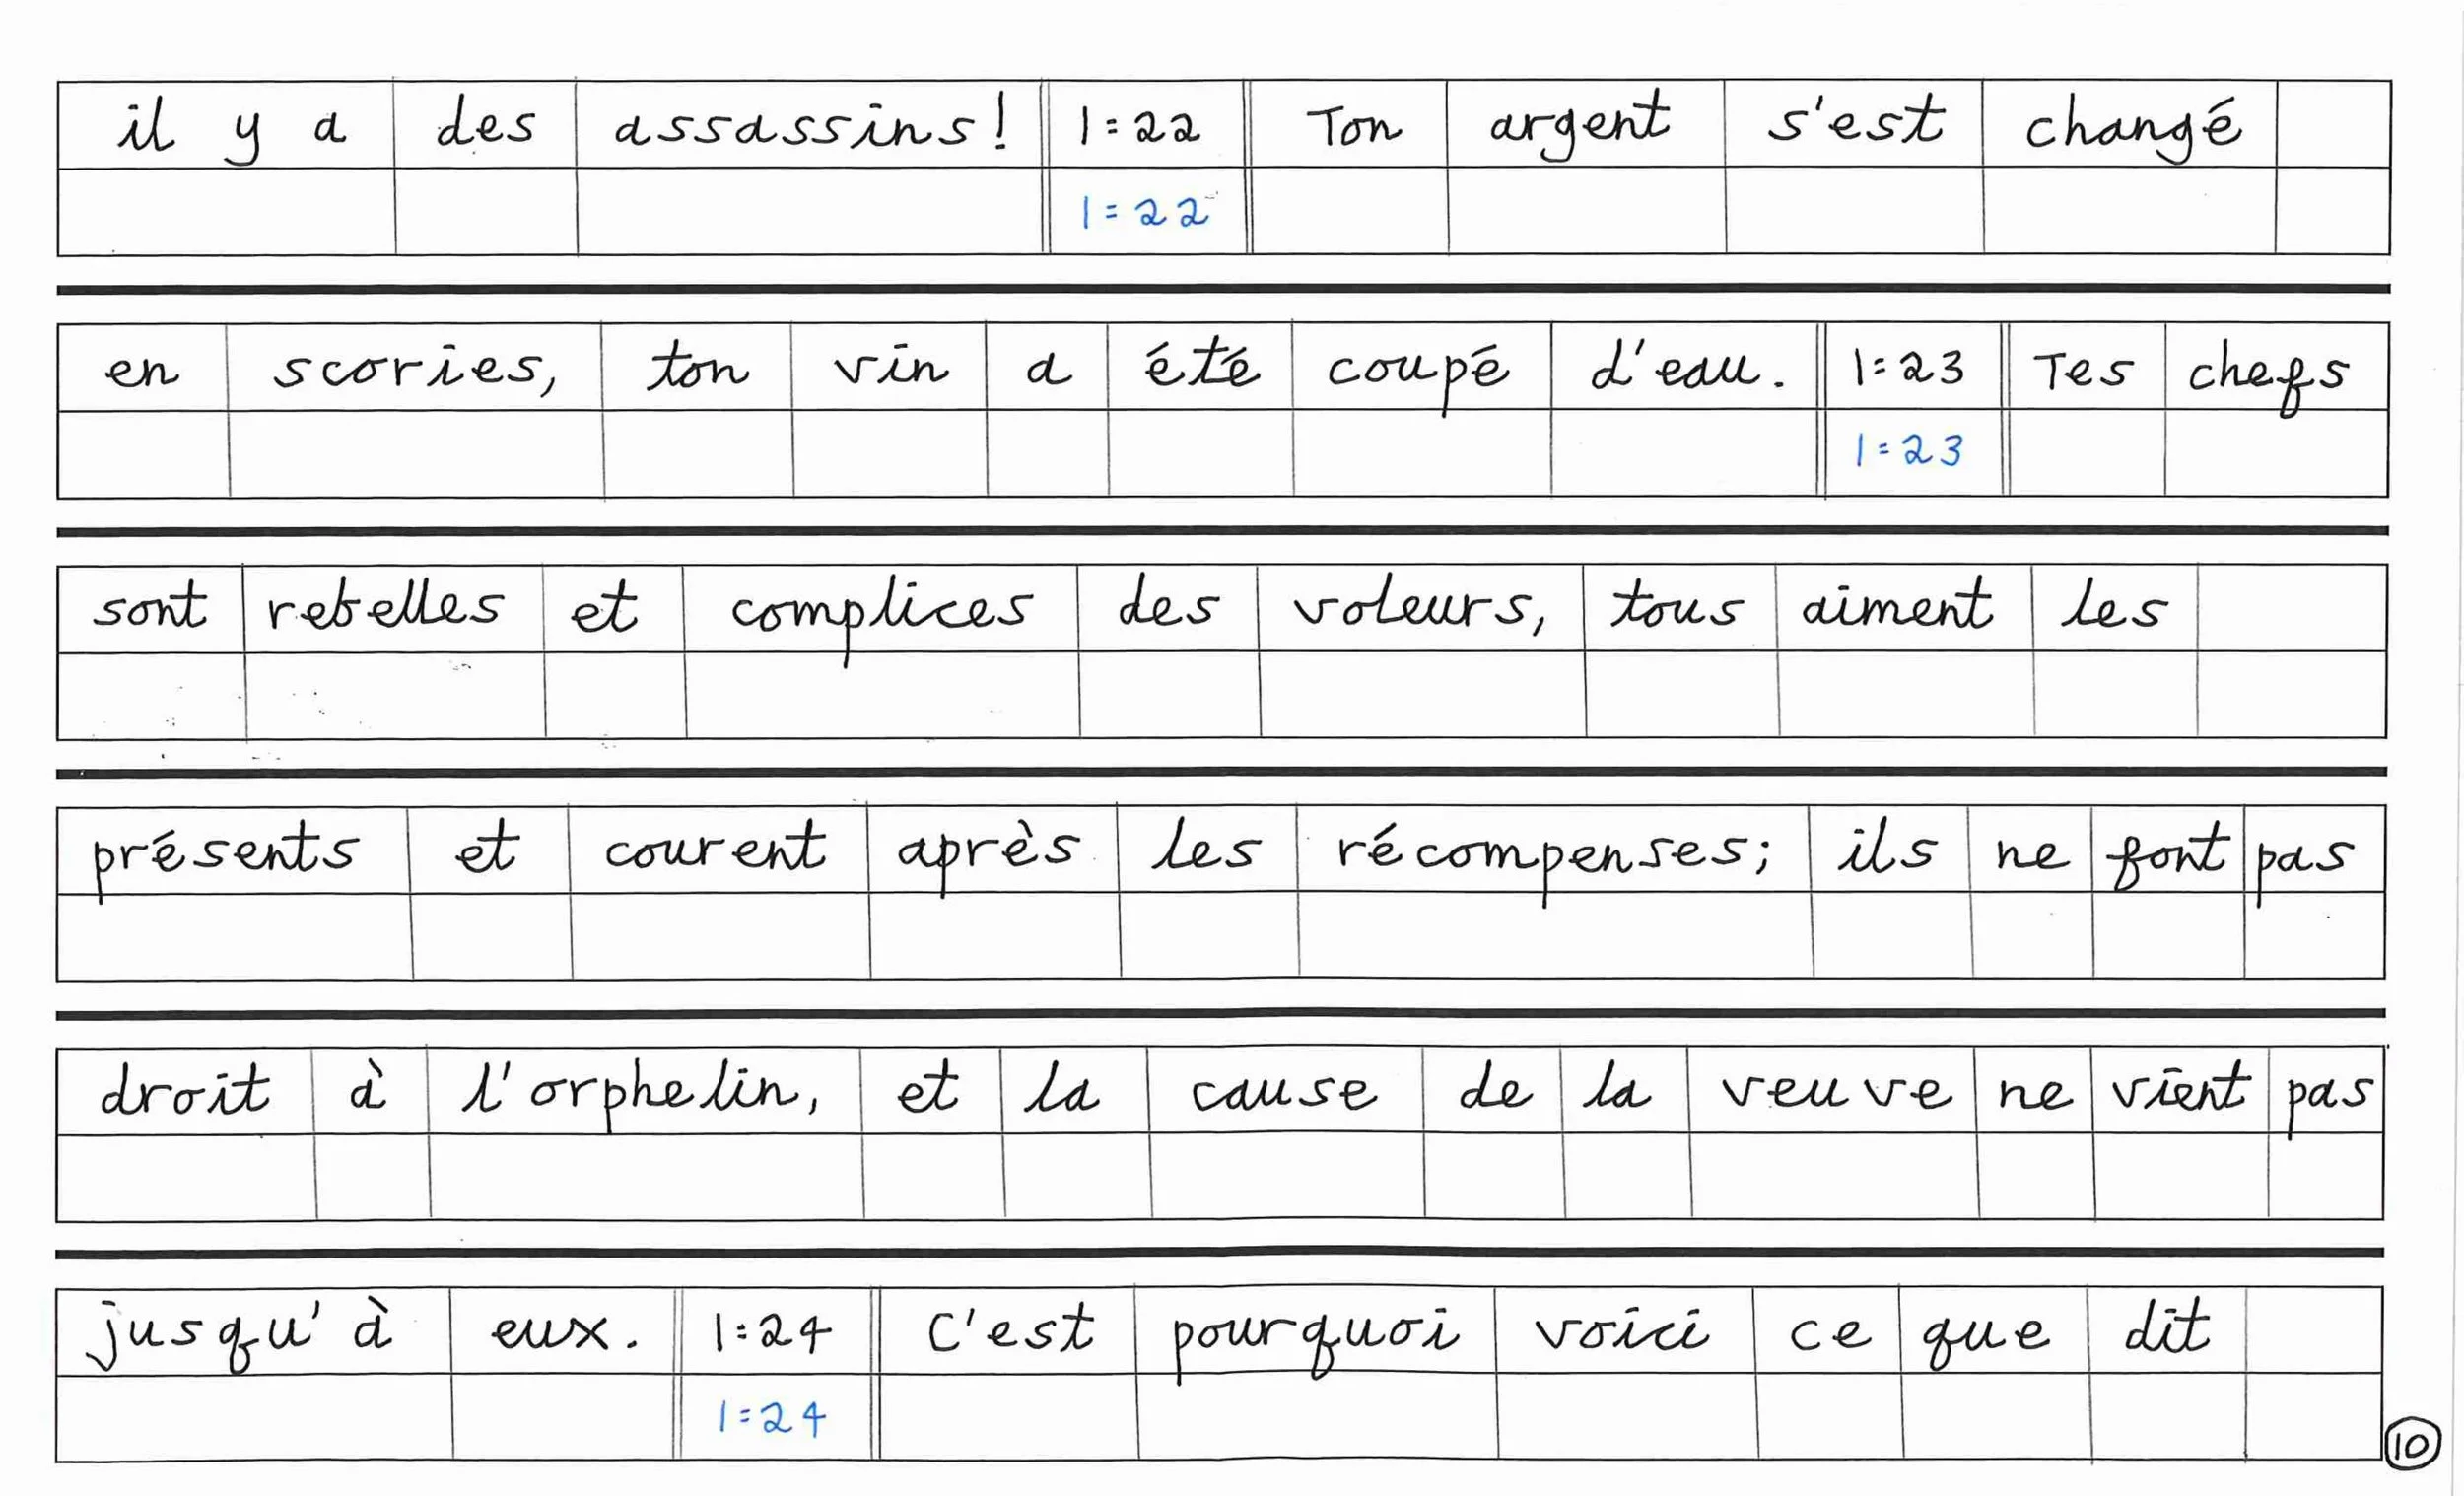 il y a des assassins! 1:22 Ton argent s'est changé
1:22
en scories, ton vin a été coupé d'eau. 1:23 Tes chefs
1:23
sont rebelles et complices des voleurs, tous aiment les
présents et courent après les récompenses; ils ne font pas
droit à l'orphelin, et la cause de la veuve ne vient pas
jusqu'à eux. 1:24 C'est pourquoi voici ce que dit
1:24
10